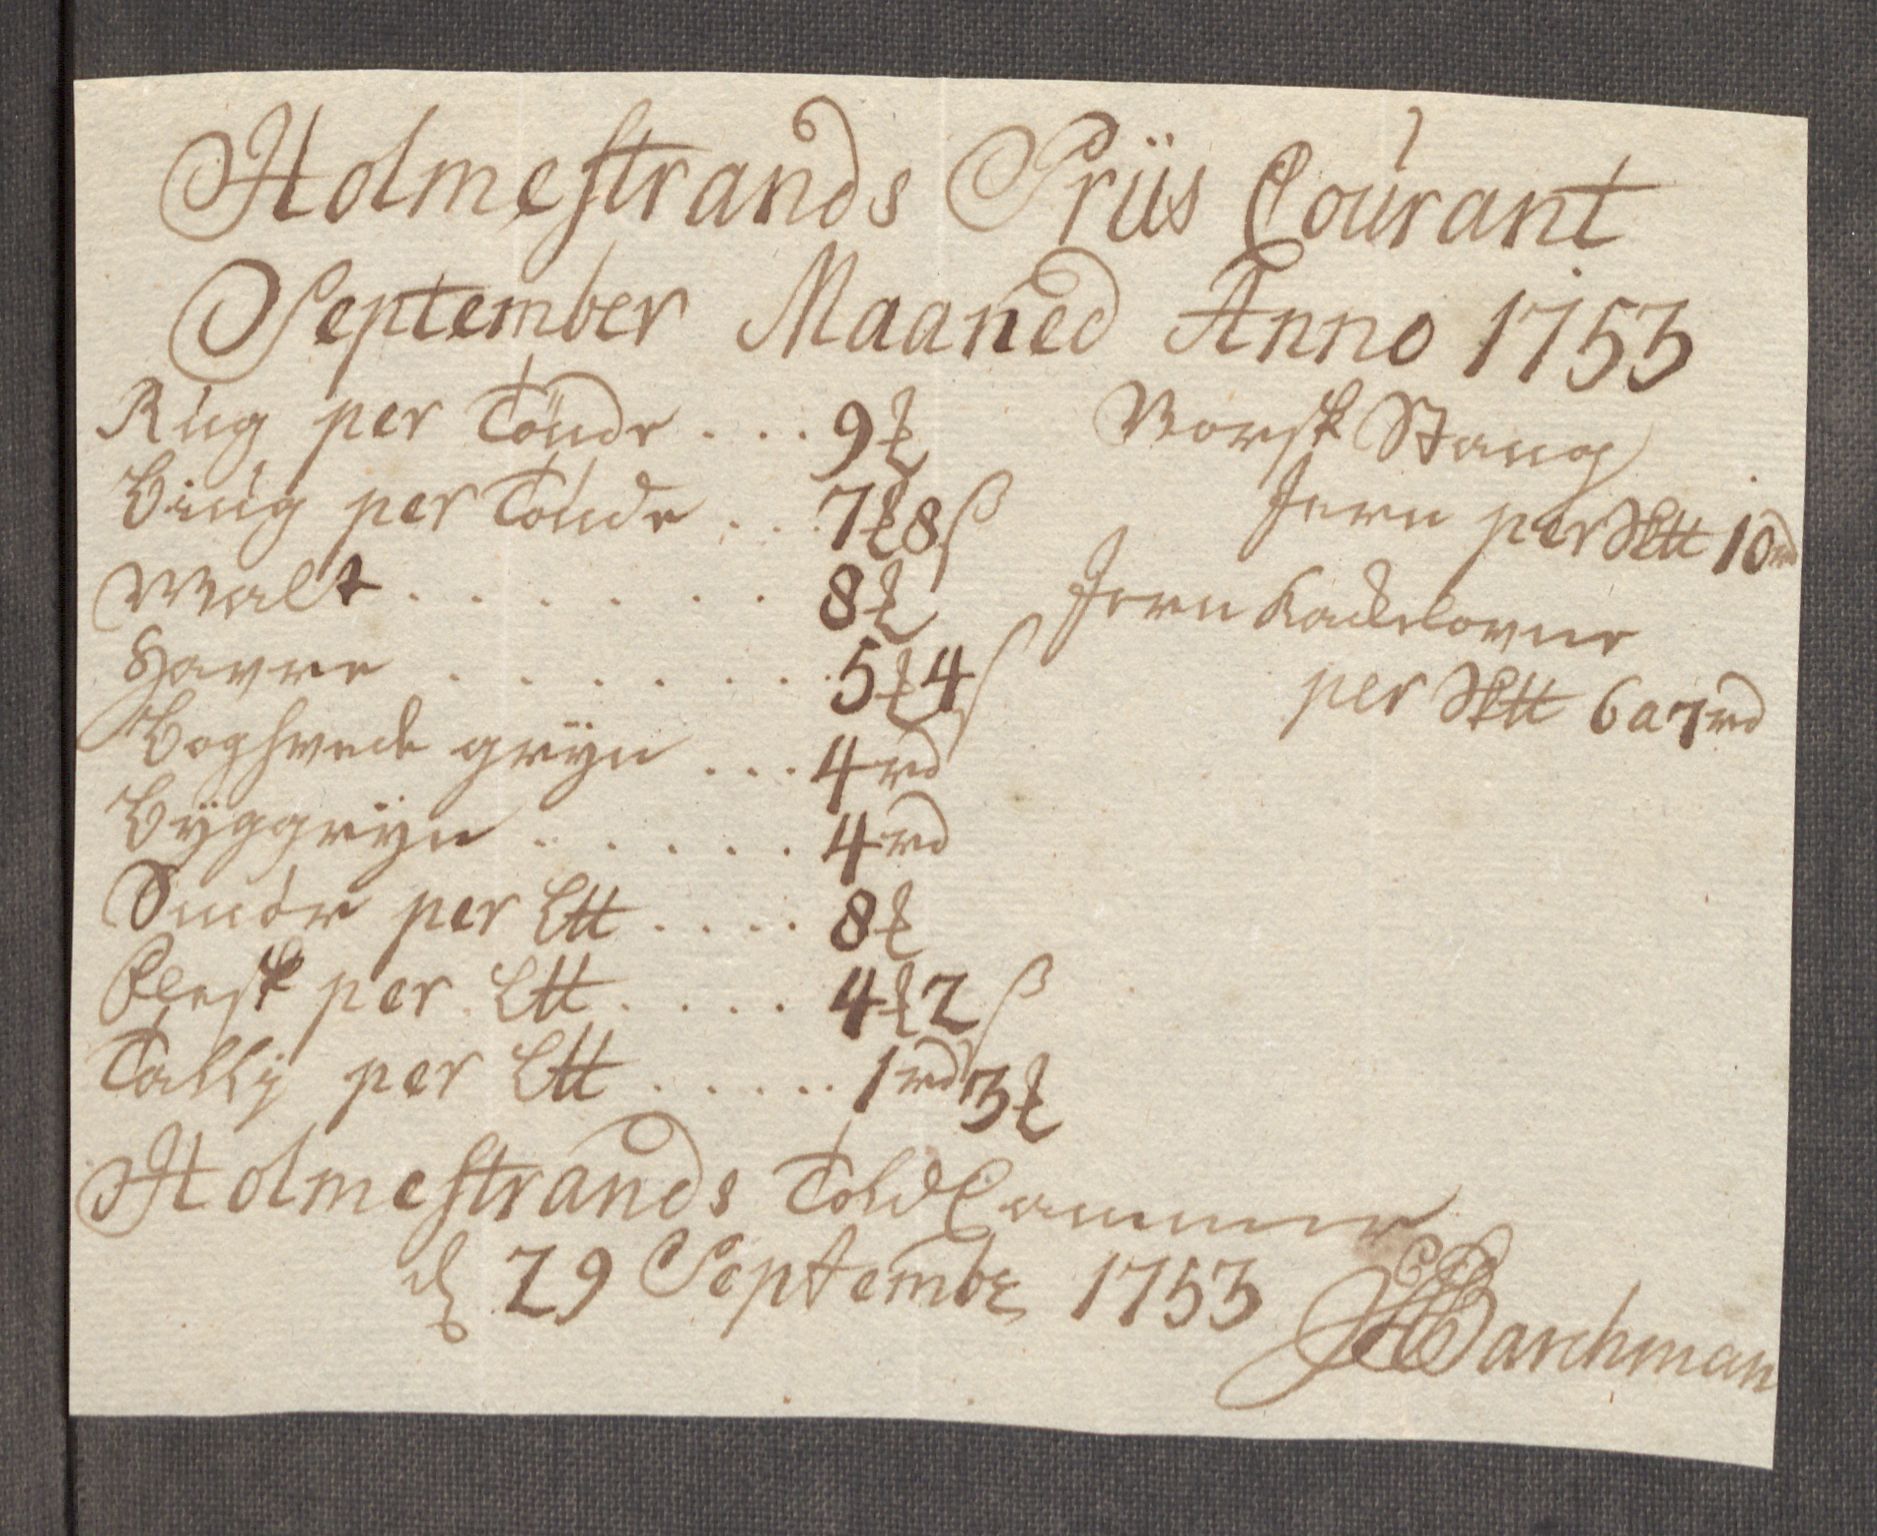 Holmestrands Priis Courant
September Maaned Anno 1753
Rug per Tönde . . . 9 ₰
Biug per Tönde . . . 7 ₰ 8 ß
Malt . . . . . . . 8 ₰
Havre . . . . . . . 5 ₰ 4 ß
Boghvede gryn . . . 4 rd
Byggryn . . . . . . 4 rd
Smör per Ltt . . . . 8 ₰
Flesk per Ltt . . . . 4 ₰ 2 ß
Tallig per Ltt . . . . . 1 rd 3 ₰
Norsk Stang
Jern per Sktt 10 rd
Jern Kackelovne
per Sktt 6 a 7 rd
Holmestrands Told Cammer
d 29 Septembr 1753
Barchman